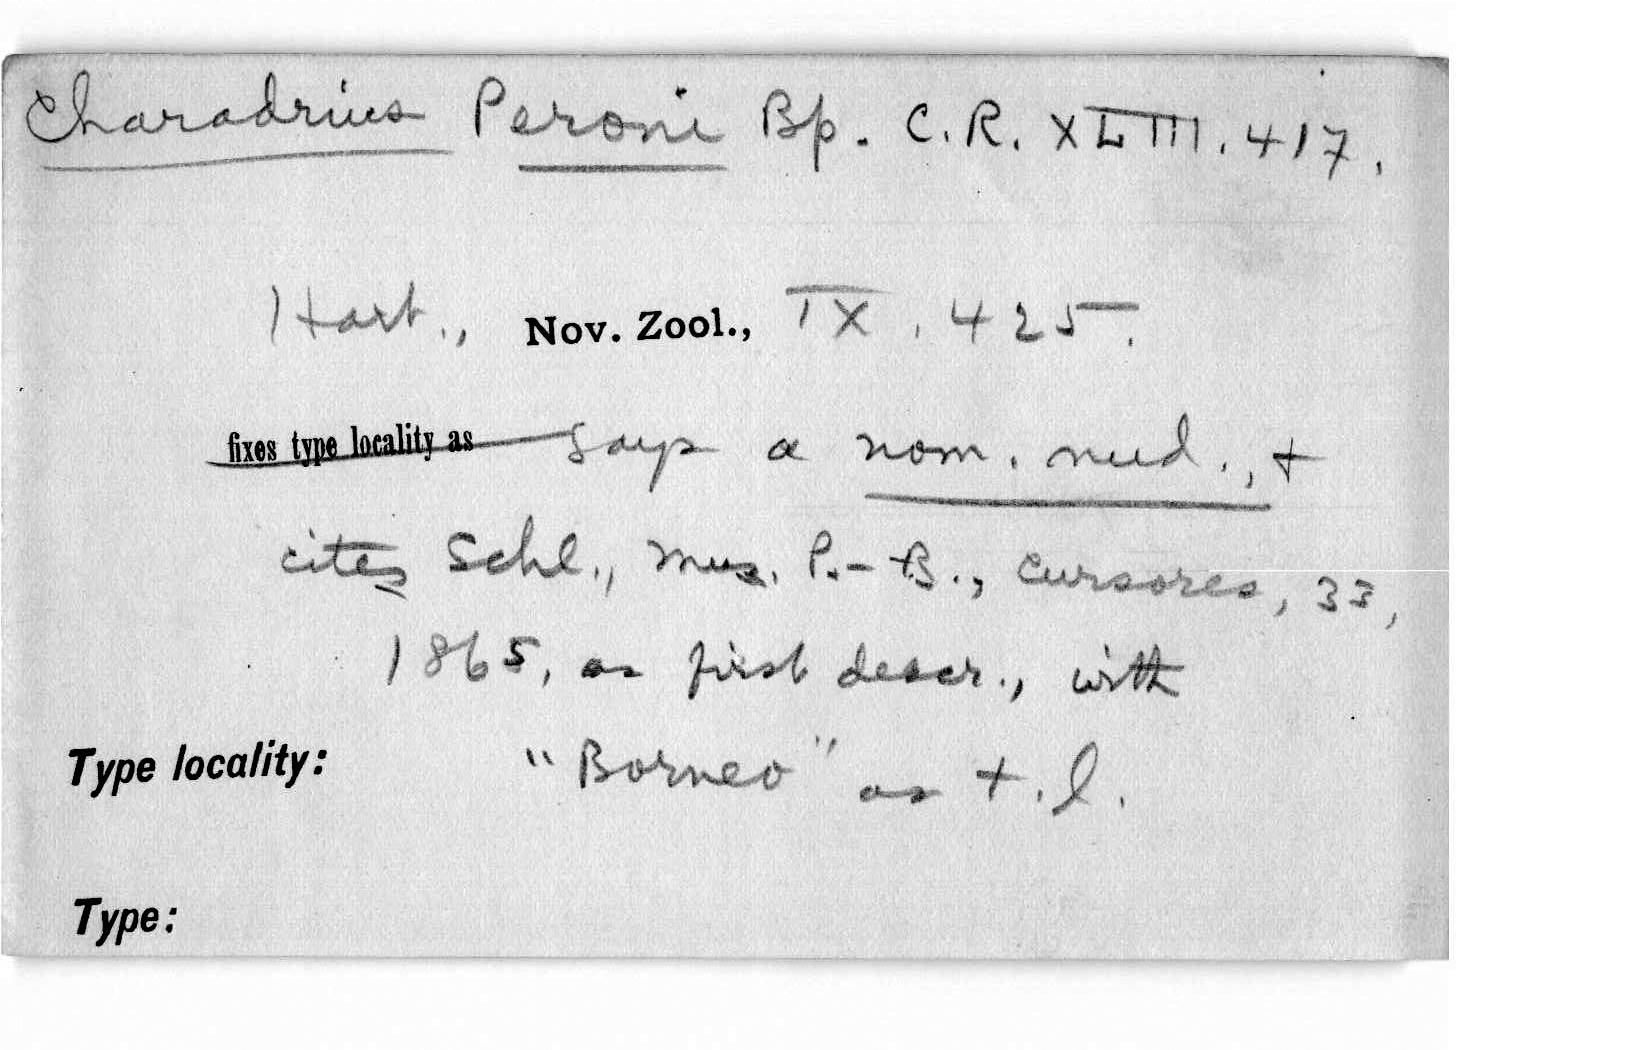 Charadrius Peroni Bp. C.R. XLIII. 417.
Hart., Nov. Zool., IX, 425.
fixes type locality as says a nom. nud., +
cites Schl., Mus. P.-B., Cursores, 33,
1865, as first descr., with
Type locality: "Borneo" as t.l.
Type: